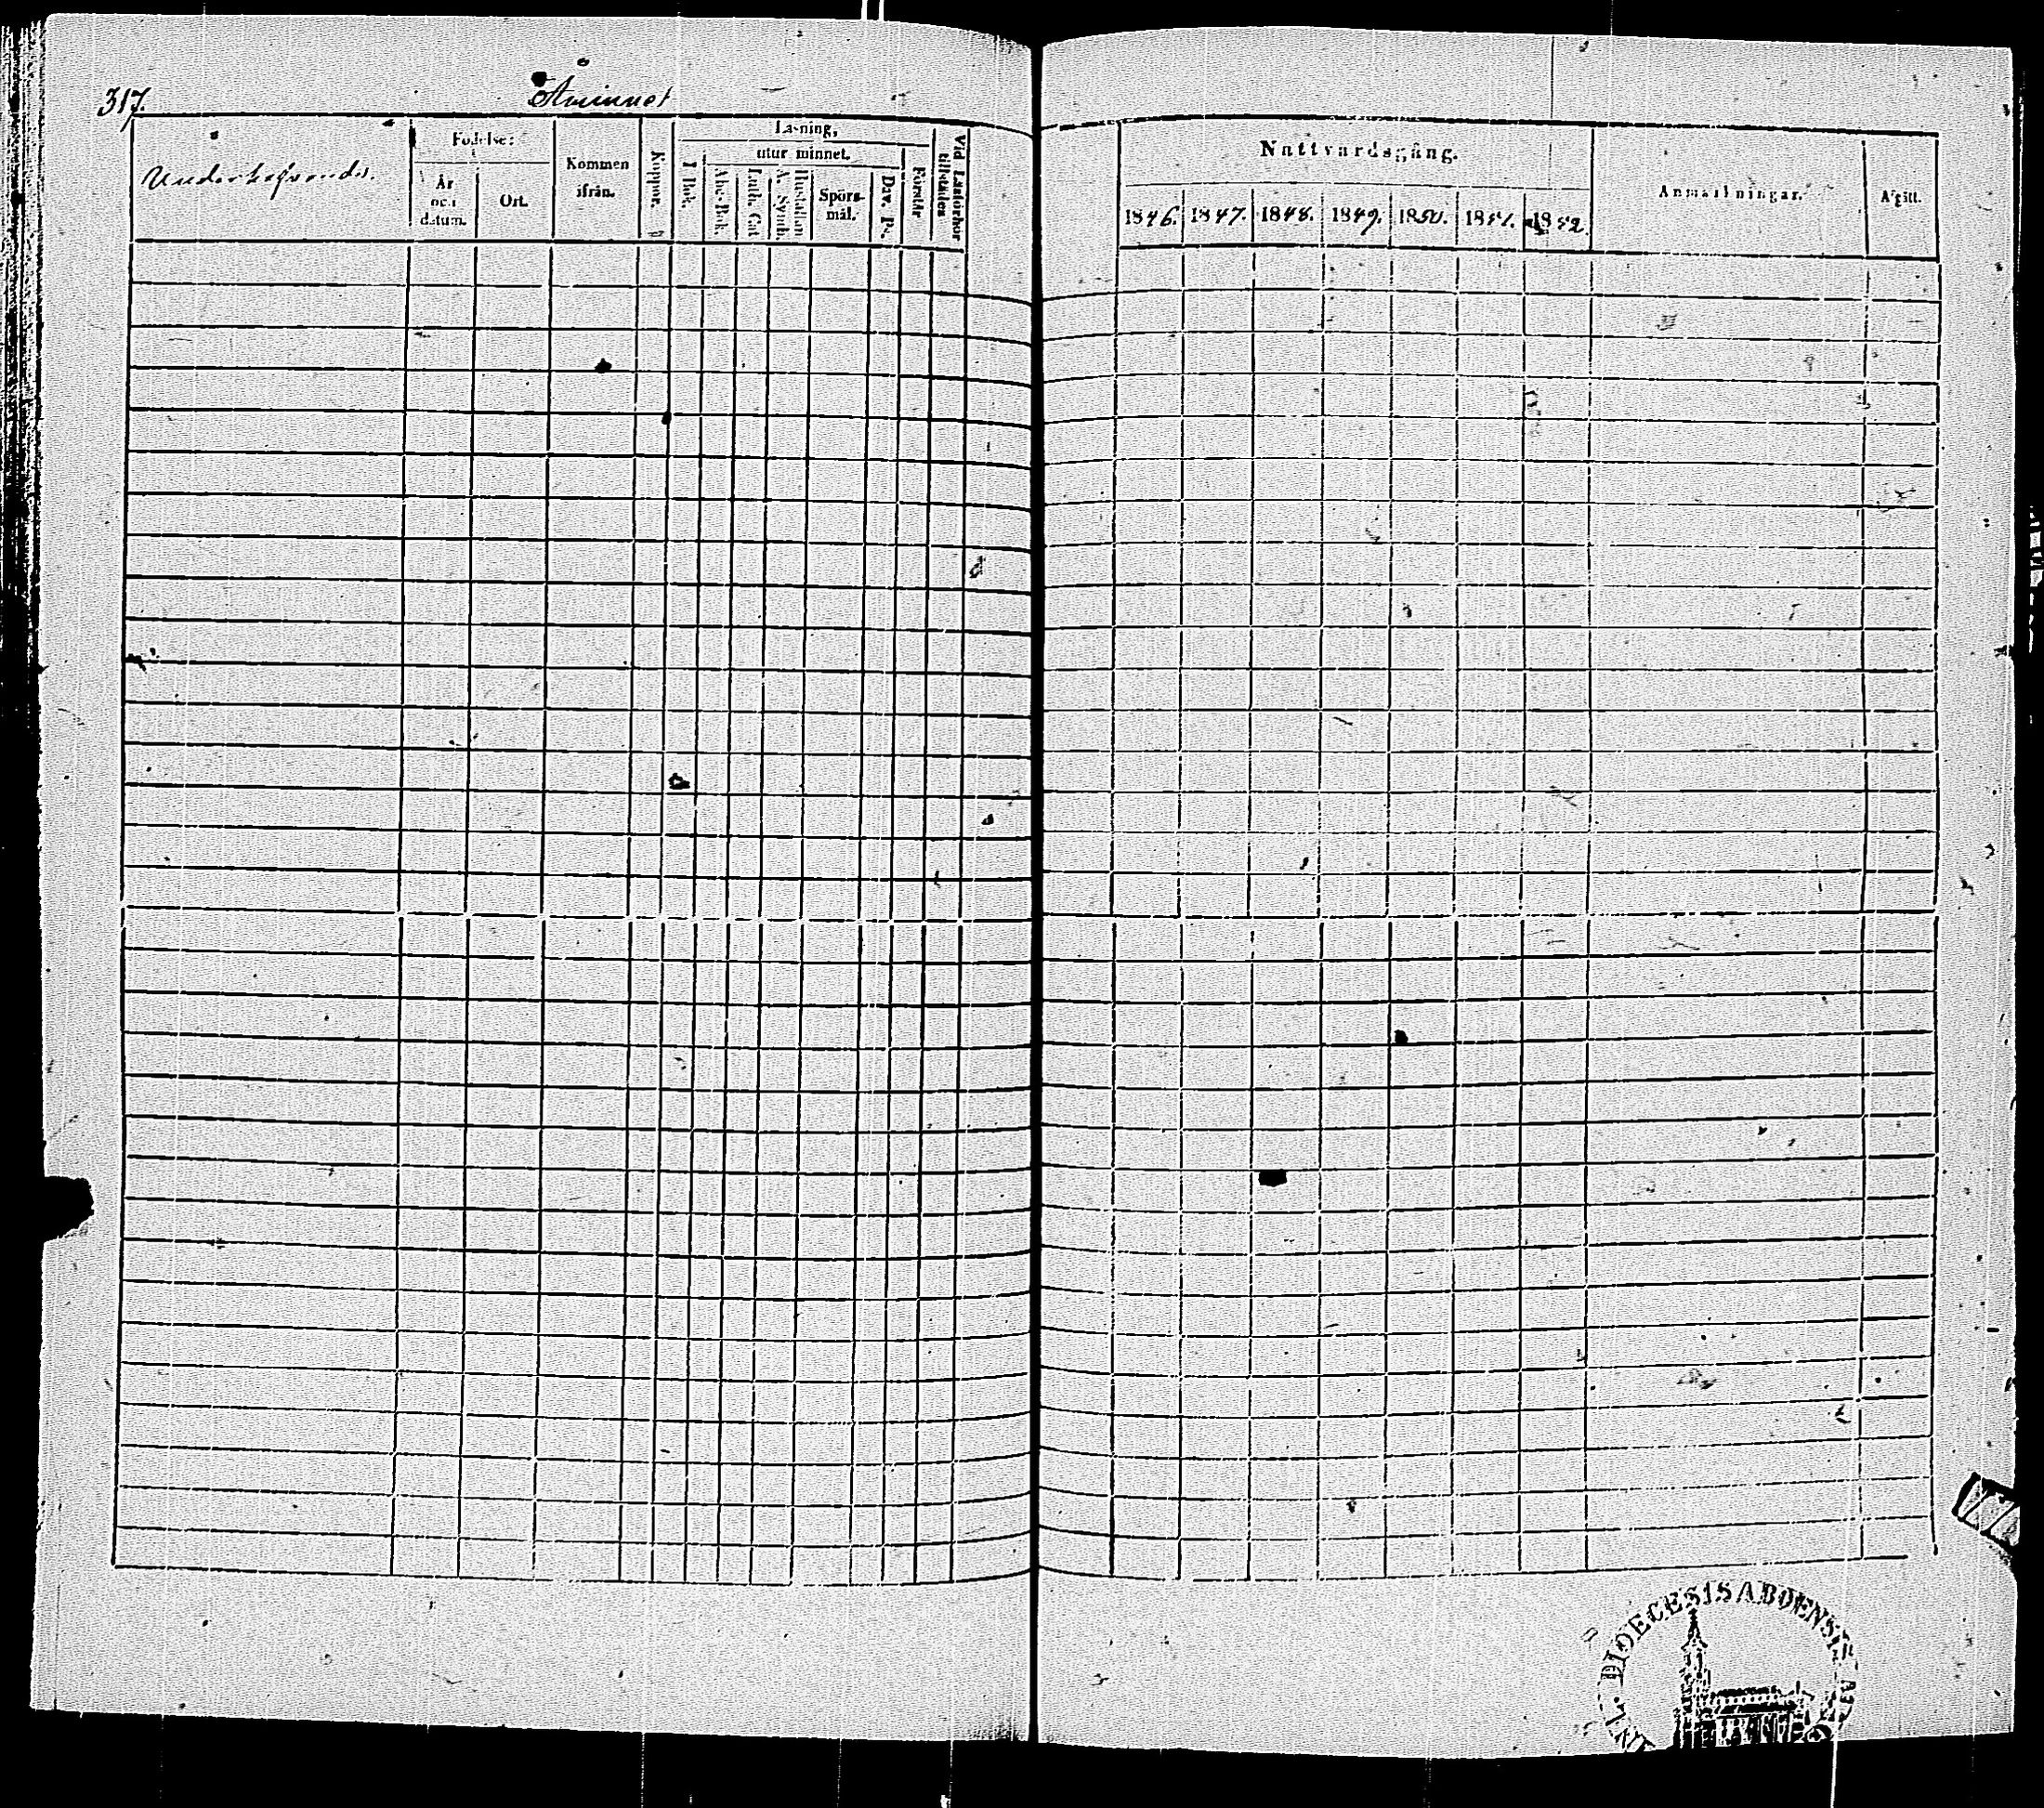 317.
Åminnet
Underhafvande.
Födelse:
År och datum.
Ort.
Kommen ifrån.
Koppor.
Läsning,
I Bok.
utur minnet.
Abc-Bok.
Luth. Cat.
A. Symb.
Hustaflan
Spörs-mål.
Dav. Ps.
Förstår
Vid Läsförhör tillstädes
Nattvardsgång.
1846.
1847.
1848.
1849.
1850.
1851.
1852.
Anmärkningar.
Afgått.
DIOECESIS ABOENSIS